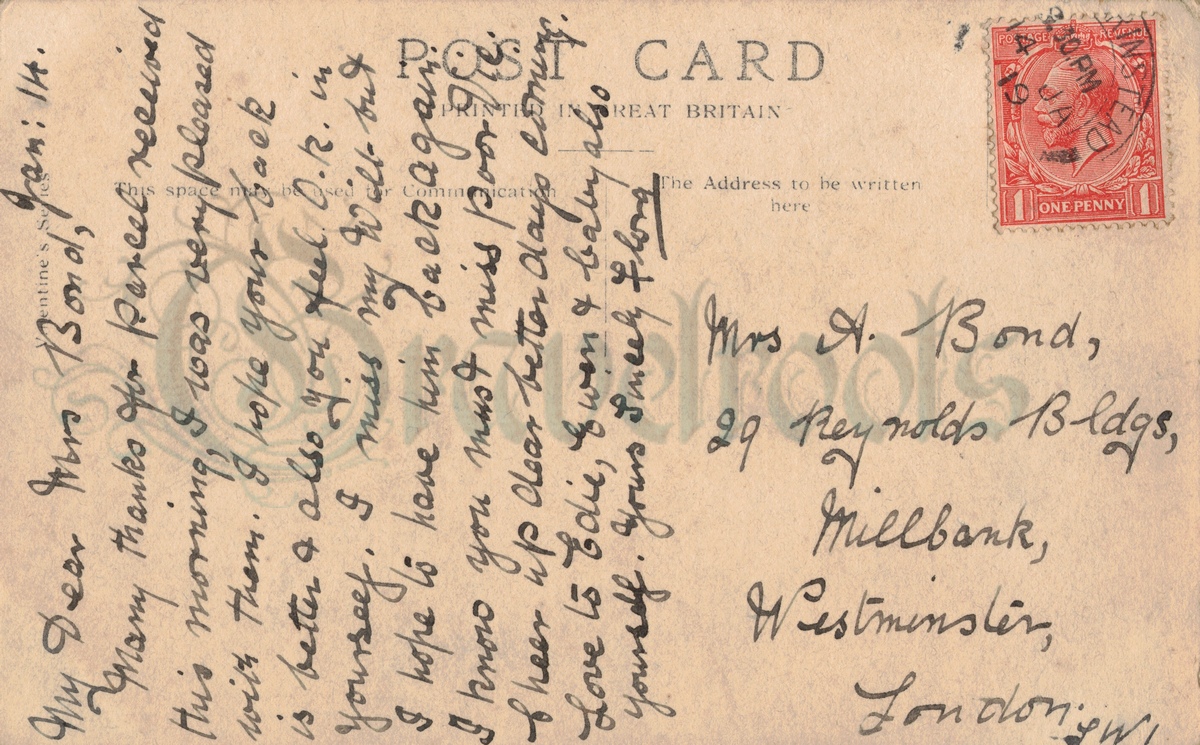 POST CARD
PRINTED IN GREAT BRITAIN
This space may be used for Communication
The Address to be written
here
Valentine's Series
POSTAGE REVENUE
1 ONE PENNY 1
30 PM
14 JA
19
INSTEAD
Jan: 14.
My Dear Mrs Bond,
Many thanks for parcel received
this morning, I was very pleased
with them. I hope your back
is better & also you feel O.K. in
yourself. I miss my Will but
I hope to have him back again.
I know you must miss poor
Cheer up dear better days coming.
Love to Edie, Ewen & baby also
yourself. Yours Sincely F long
Mrs A. Bond,
29 Reynolds Bldgs,
Millbank,
Westminster,
London.
SW1
Gravelroots